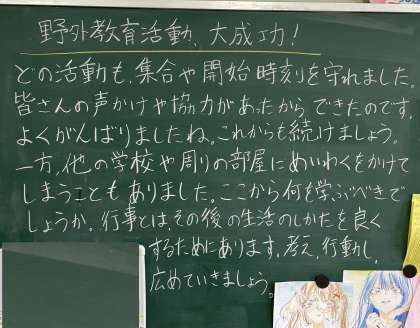 野外教育活動、大成功!
どの活動も、集合や開始時刻を守れました。
皆さんの声かけや協力があったからできたのです。
よくがんばりましたね。これからも続けましょう。
一方、他の学校や周りの部屋にめいわくをかけて
しまうこともありました。ここから何を学ぶべきで
しょうか。行事とは、その後の生活のしかたを良く
するためにあります。考え、行動し、
広めていきましょう。